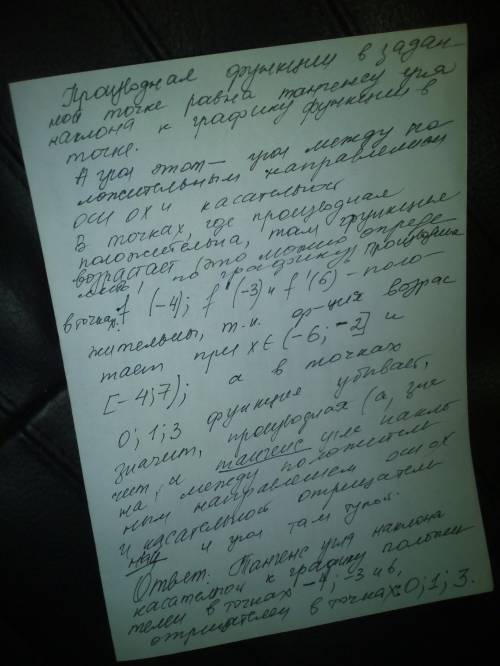 Производная функции в задан-
ной точке равна тангенсу угла
наклона к графику функции в
точке.
А угол этот — угол между по
ложительным направлением
оси ох и касательной
В точках, где производная
положительна, там функция
возрастает (это можно опреде
лить по графику производной
в точках f (-4); f' (-3) и f'(6) - поло-
жительны, т.к. ф-ция возрас
тает при x∈(-6; -2] и
[-4;7); а в точках
0; 1; 3 функция убывает,
значит, производная (а, зна
чит, и тангенс угла накло
на между положитель
ным направлением оси ох
и касательной отрицатель
ный и угол там тупой.
Ответ: Тангенс угла наклона
касательной к графику положи
телен в точках -4; -3 и 6,
отрицателен в точках: 0; 1; 3.